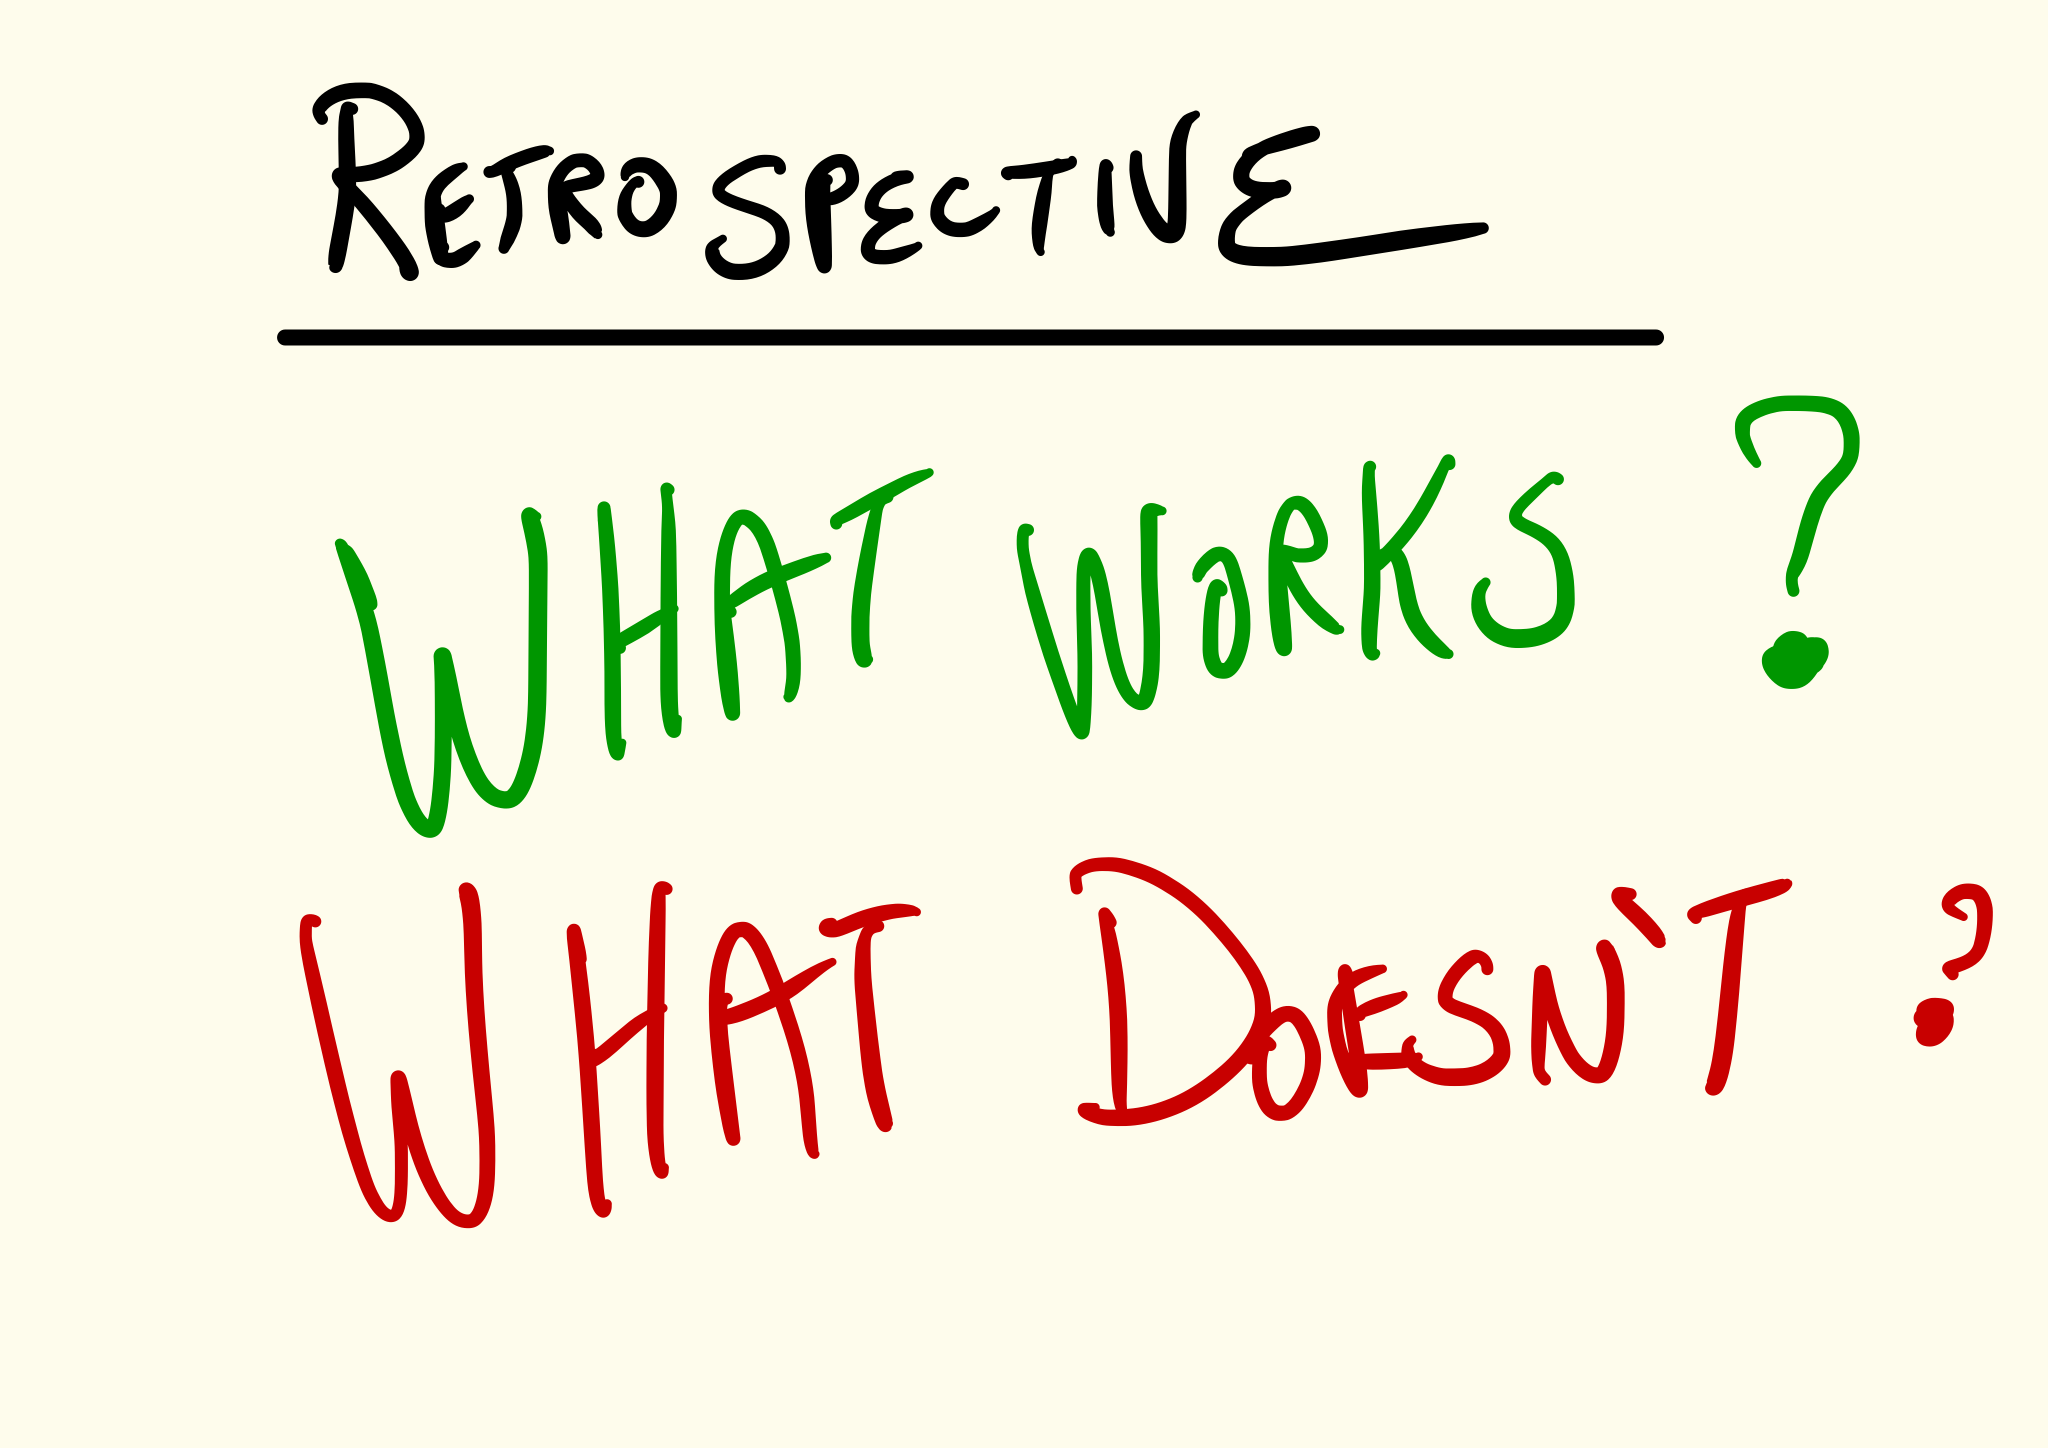 RETROSPECTIVE
WHAT WORKS ?
WHAT DOESN'T ?